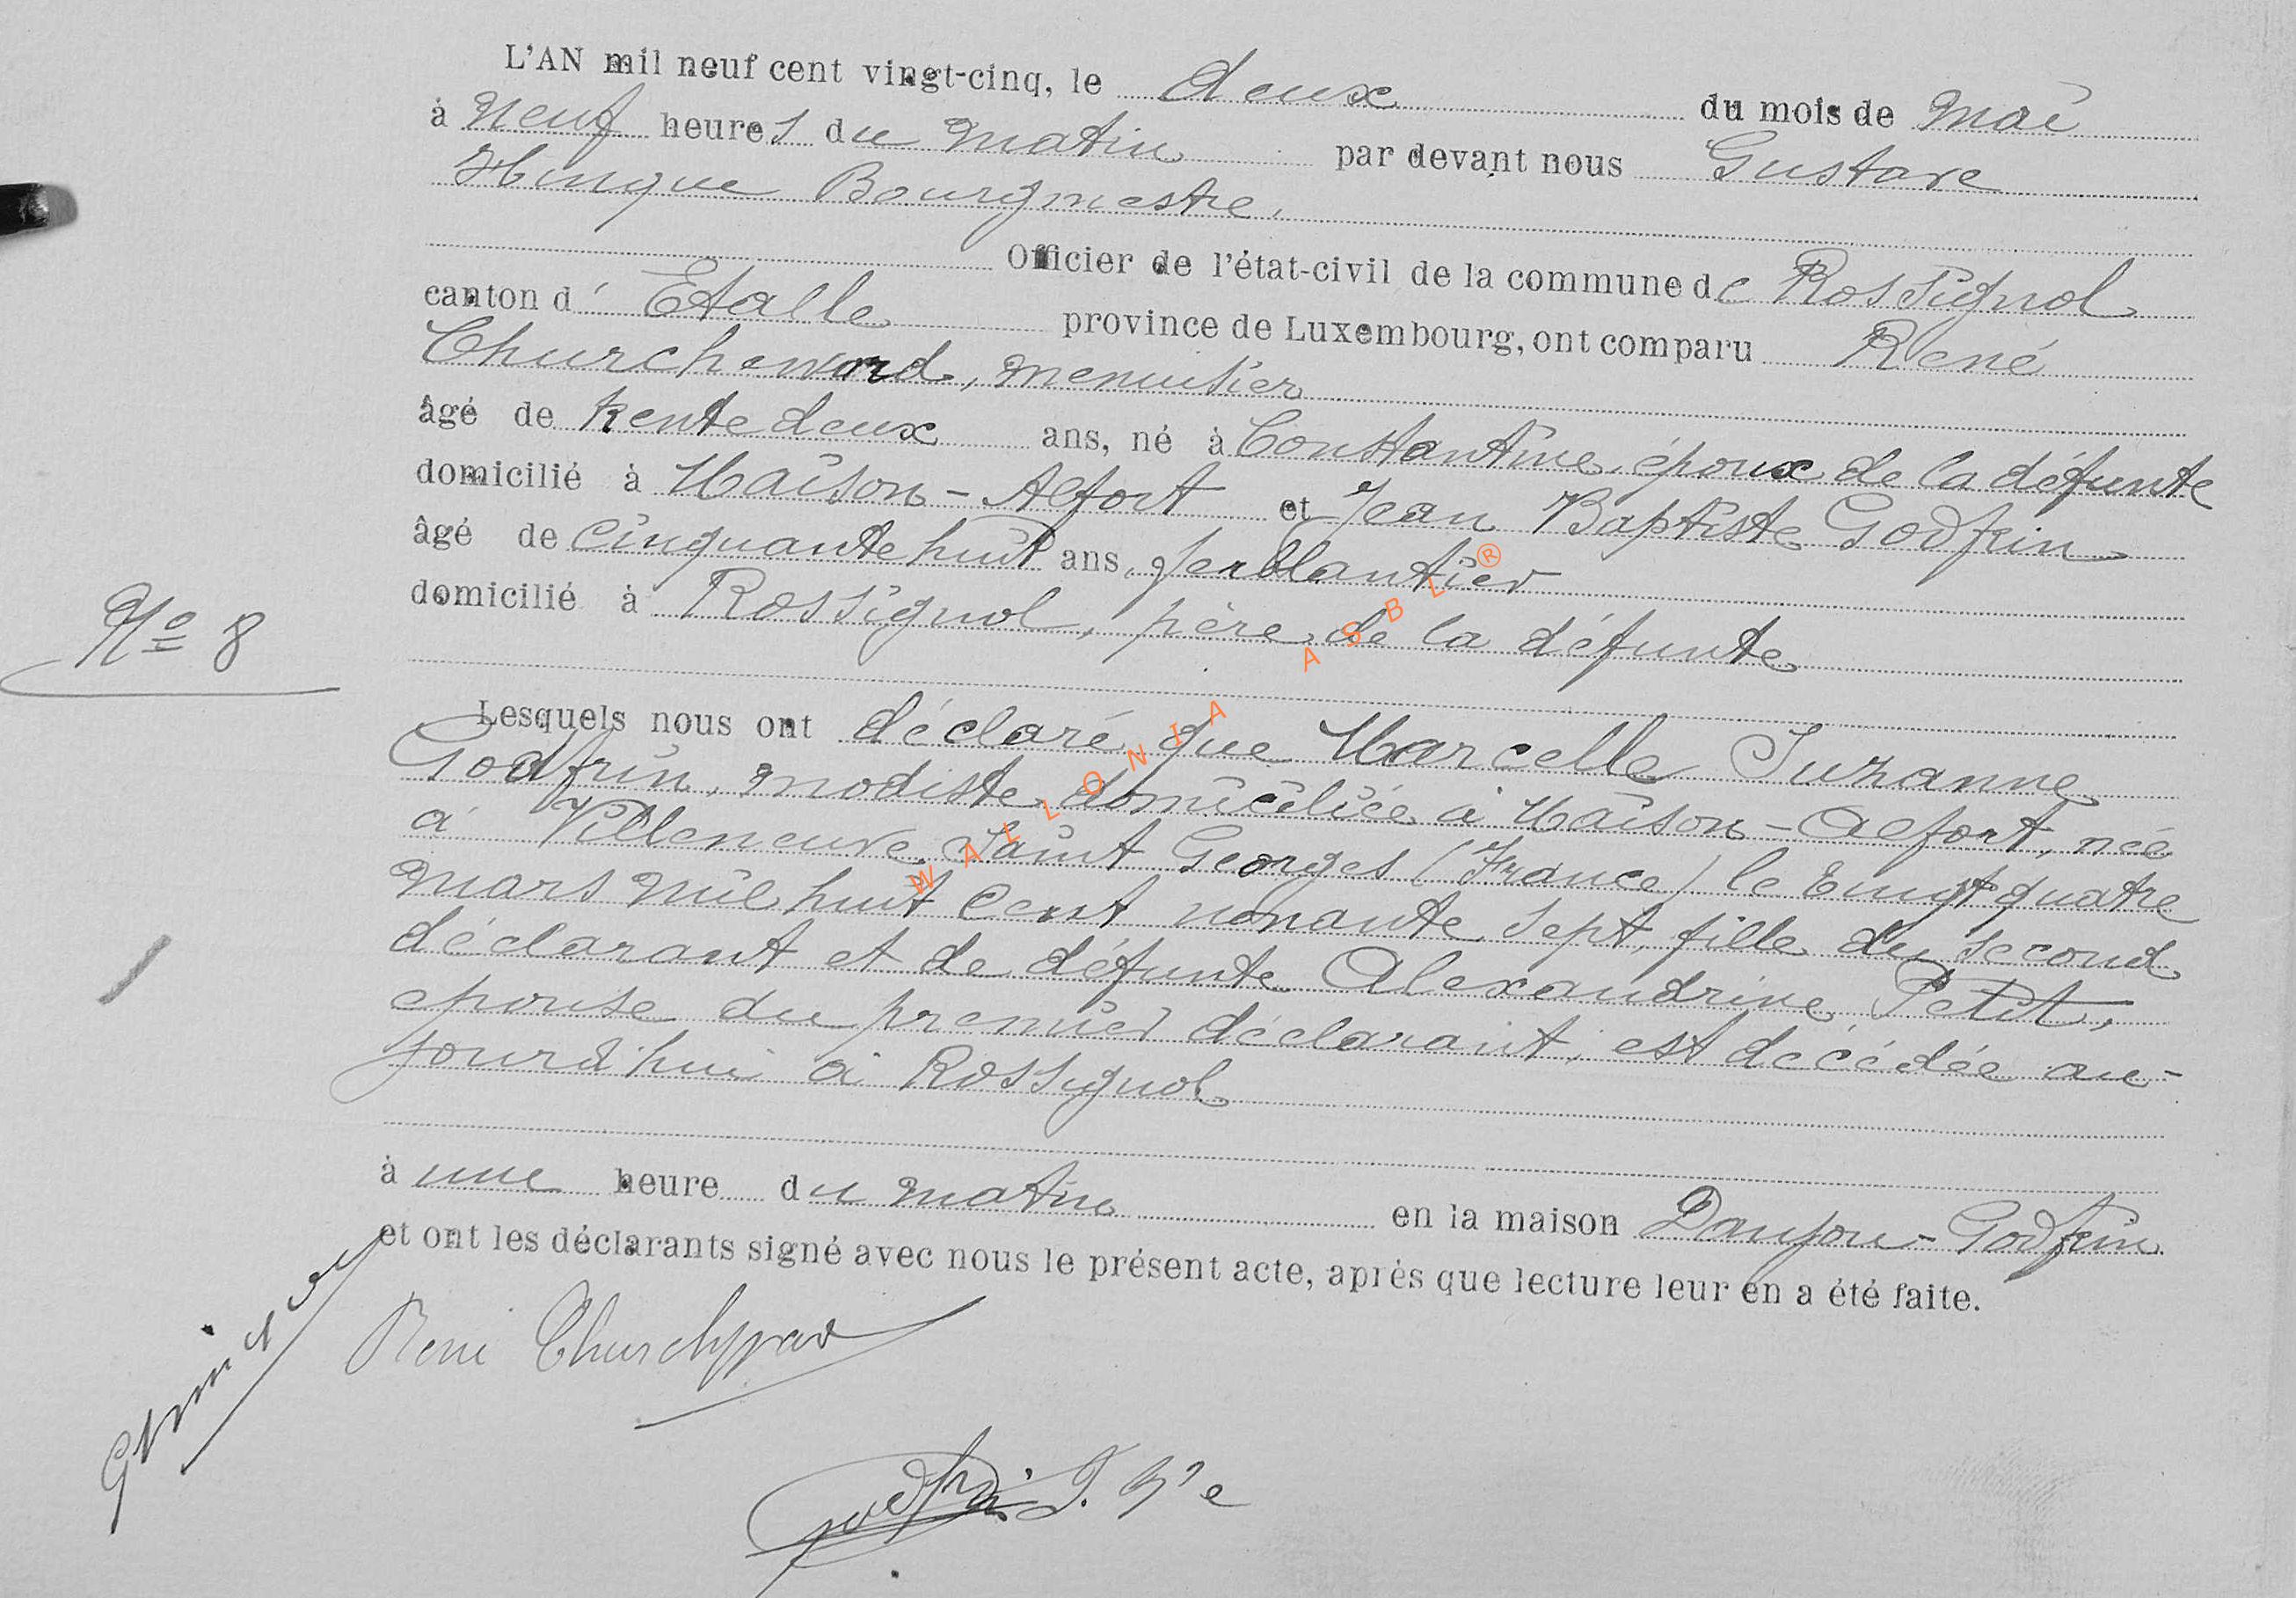 L'AN mil neuf cent vingt-cinq, le deux du mois de mai
à neuf heures du matin par devant nous Gustave
Hinque Bourgmestre,
Officier de l'état-civil de la commune de Rossignol
canton d' Etalle province de Luxembourg, ont comparu René
Churchward, menuisier
âgé de trente deux ans, né à Constantine, époux de la défunte
domicilié à Maison-Alfort et Jean Baptiste Godfrin
âgé de cinquante huit ans, ferblantier
domicilié à Rossignol, père de la défunte
Nº 8
Lesquels nous ont déclaré que Marcelle Suzanne
Godfrin, modiste domiciliée à Maison-Alfort, née
à Villeneuve Saint Georges (France) le vingt quatre
mars mil huit cent nonante sept, fille du second
déclarant et de défunte Alexandrine Petit,
épouse du premier déclarant, est décédée au-
jourd'hui à Rossignol
à une heure du matin en la maison Danjou-Godfrin
et ont les déclarants signé avec nous le présent acte, après que lecture leur en a été faite.
René Churchward
Godfrin J. Bte
WALLONIA ASBL ®